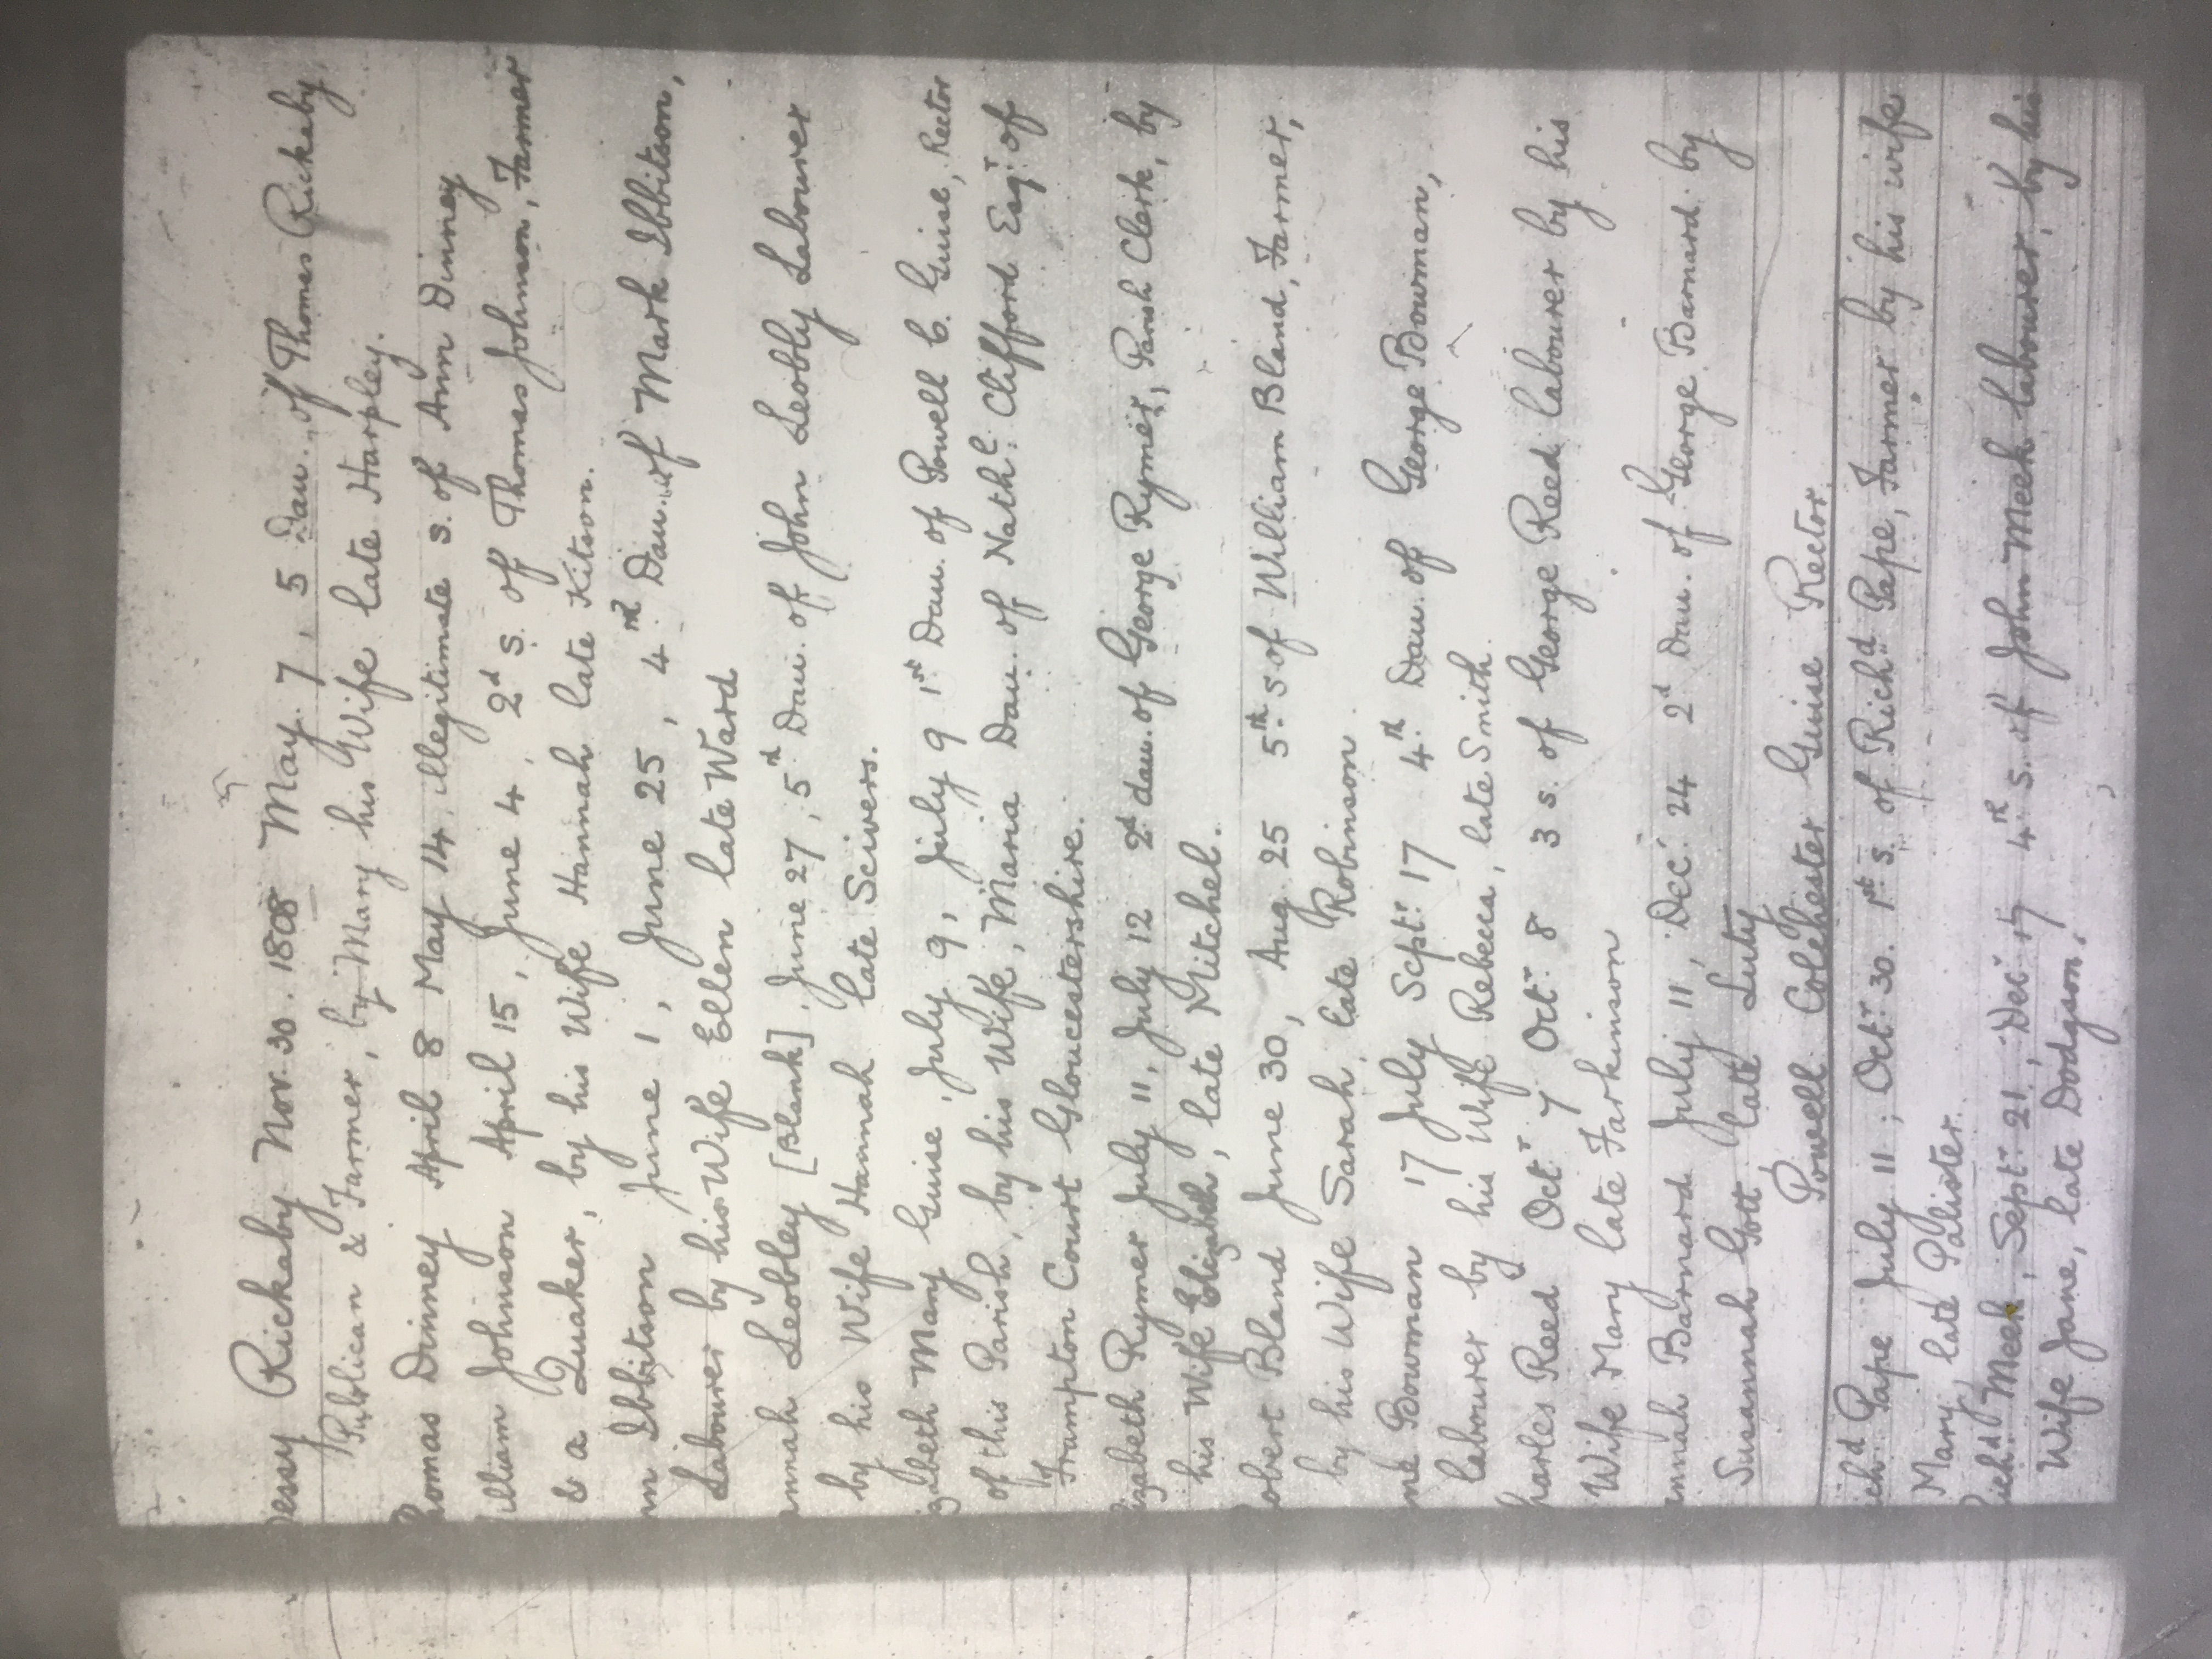 essy Rickaby Nov. 30. 1808 May. 7, 5 Dau. of Thomas Rickaby,
Publican & Farmer, by Mary his Wife late Harpley.
homas Dinney April 8 May 14, illegitimate s. of Ann Dinney
illiam Johnson April 15, June 4, 2d s. of Thomas Johnson, Farmer
& a Quaker, by his Wife Hannah late Kitson.
nn Ibbitson June 1, June 25, 4th Dau. of Mark Ibbitson,
Labourer by his Wife Ellen late Ward
nnah Leobley [Blank] June 27, 5th Dau. of John Leobly Labourer
by his Wife Hannah late Scivers.
izabeth Mary Guise July 9, July 9 1st Dau. of Powell C. Guise, Rector
of this Parish, by his Wife, Maria Dau. of Nathl: Clifford Esqr: of
Frampton Court Gloucestershire.
lizabeth Rymer July 11, July 12 2d dau. of George Rymer, Parish Clerk, by
his Wife Elizabeth, late Mitchel.
obert Bland June 30, Aug 25 5th s of William Bland, Farmer,
by his Wife Sarah, late Robinson.
ne Bowman 17 July Sept: 17 4th Dau. of George Bowman,
labourer by his Wife Rebecca, late Smith.
harles Reed Octr 7 Octr 8 3 s. of George Reed labourer by his
Wife Mary late Farkinson
nnah Barnard July 11, Decr 24 2d Dau. of George Barnard by
Susannah Gott late Luty
Powell Colchester Guise Rector.
ichd Pape July 11; Octr 30. 1st s. of Richd Pape, Farmer by his wife
Mary, late Palister.
ichd Meek, Septr 21, Decr 17 4th s. of John Meek labourer, by his
Wife Jane, late Dodgson.